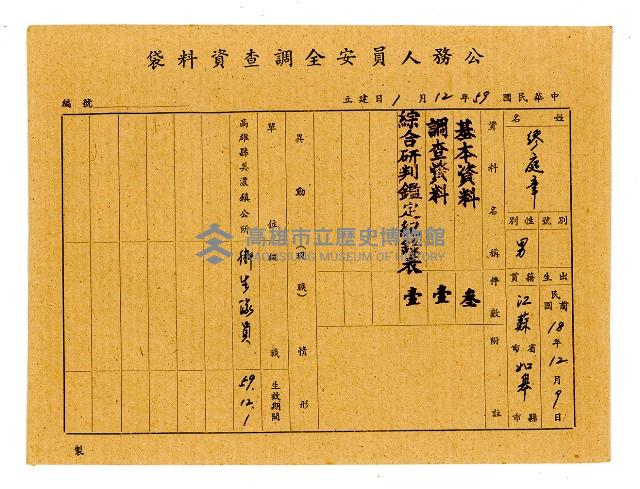 公務人員安全調查資料袋
中華民國59年12月1日建立
編號
姓名
繆庭章
別號
性別
男
出生
民國前18年12月9日
籍貫
江蘇省市
如皋縣市
資料名稱
件數
附註
基本資料
叁
調查資料
壹
綜合研判鑑定紀錄表
壹
異動(現職)情形
單位
級職
生效期間
高雄縣美濃鎮公所
衛生隊員
59.12.1
製
高雄市立歷史博物館
KAOHSIUNG MUSEUM OF HISTORY